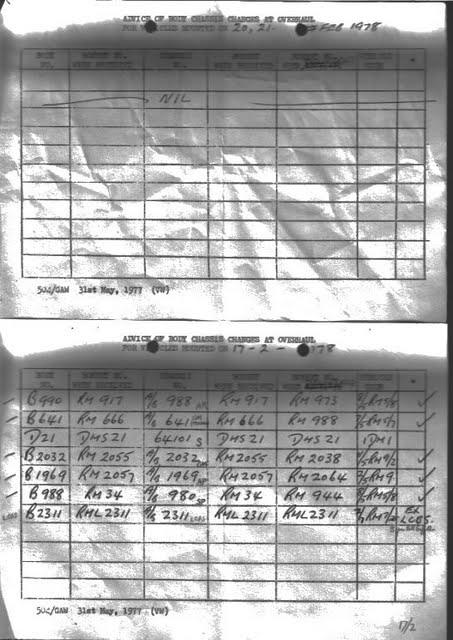 ADVICE OF BODY CHASSIS CHANGES AT OVERHAUL
FOR VEHICLES MOUNTED ON 20, 21 - FEB 1978
BODY NO. BONNET NO. WHEN RECEIVED CHASSIS NO. BONNET BONNET NO. WHEN CODE
NIL
504/GAW 31st May, 1977 (VW)
ADVICE OF BODY CHASSIS CHANGES AT OVERHAUL
FOR VEHICLES MOUNTED ON 17 - 2 - 1978
BODY NO. BONNET NO. WHEN RECEIVED NO. BONNET BONNET NO. WHEN CODE
B990 RM 917 988 RM 917 RM 973 RM5/8 ✓
B641 RM 666 641 RM 666 RM 988 ✓
D21 DMS 21 64101 S DMS 21 DMS 21 1DM1
B2032 RM 2055 2032 RM 2055 RM 2038 RM9/2 ✓
B1969 RM 2057 1969 RM 2057 RM 2064 RM9 ✓
B988 RM 34 980 RM 34 RM 944 RM5/8 ✓
B2311 RML 2311 2311 RML 2311 RML 2311 EX
LCBS
504/GAW 31st May, 1977 (VW)
17/2